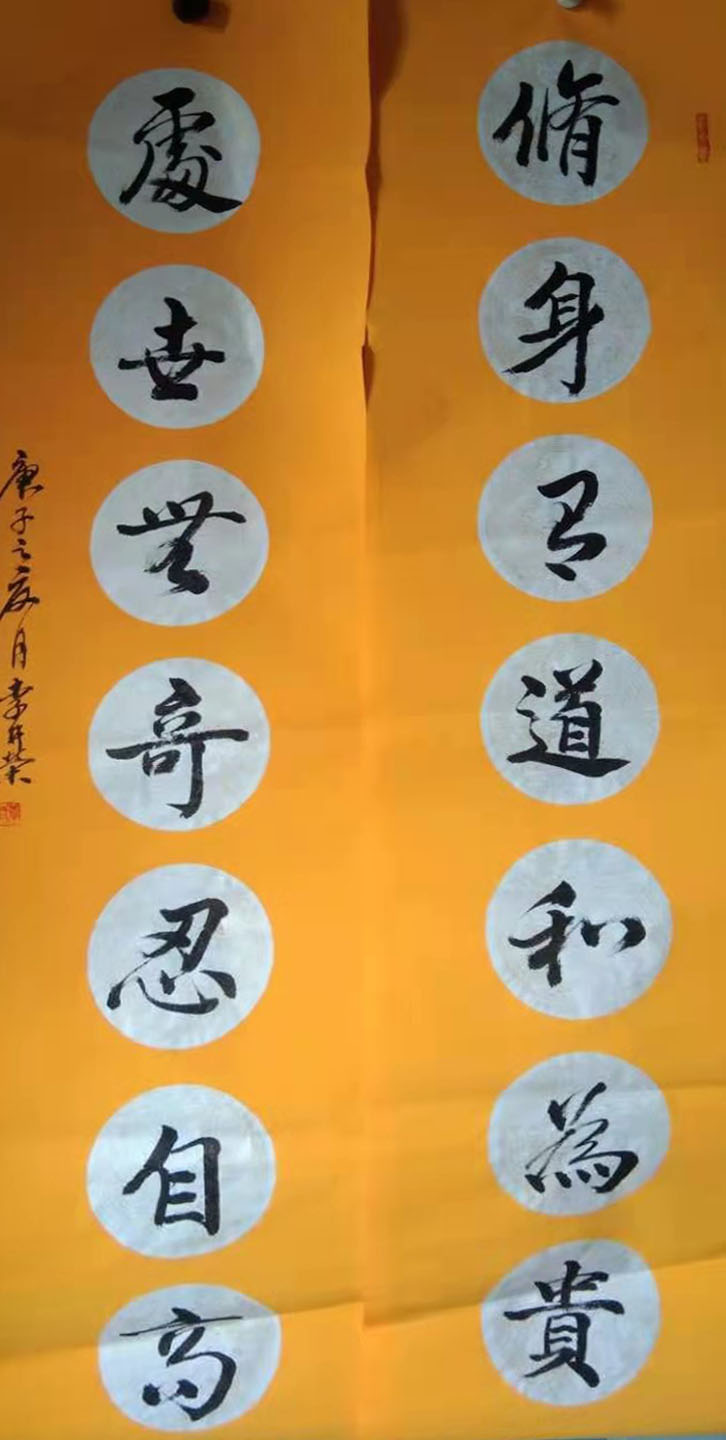 脩身有道和為貴
處世無奇忍自高
庚子之夏月李